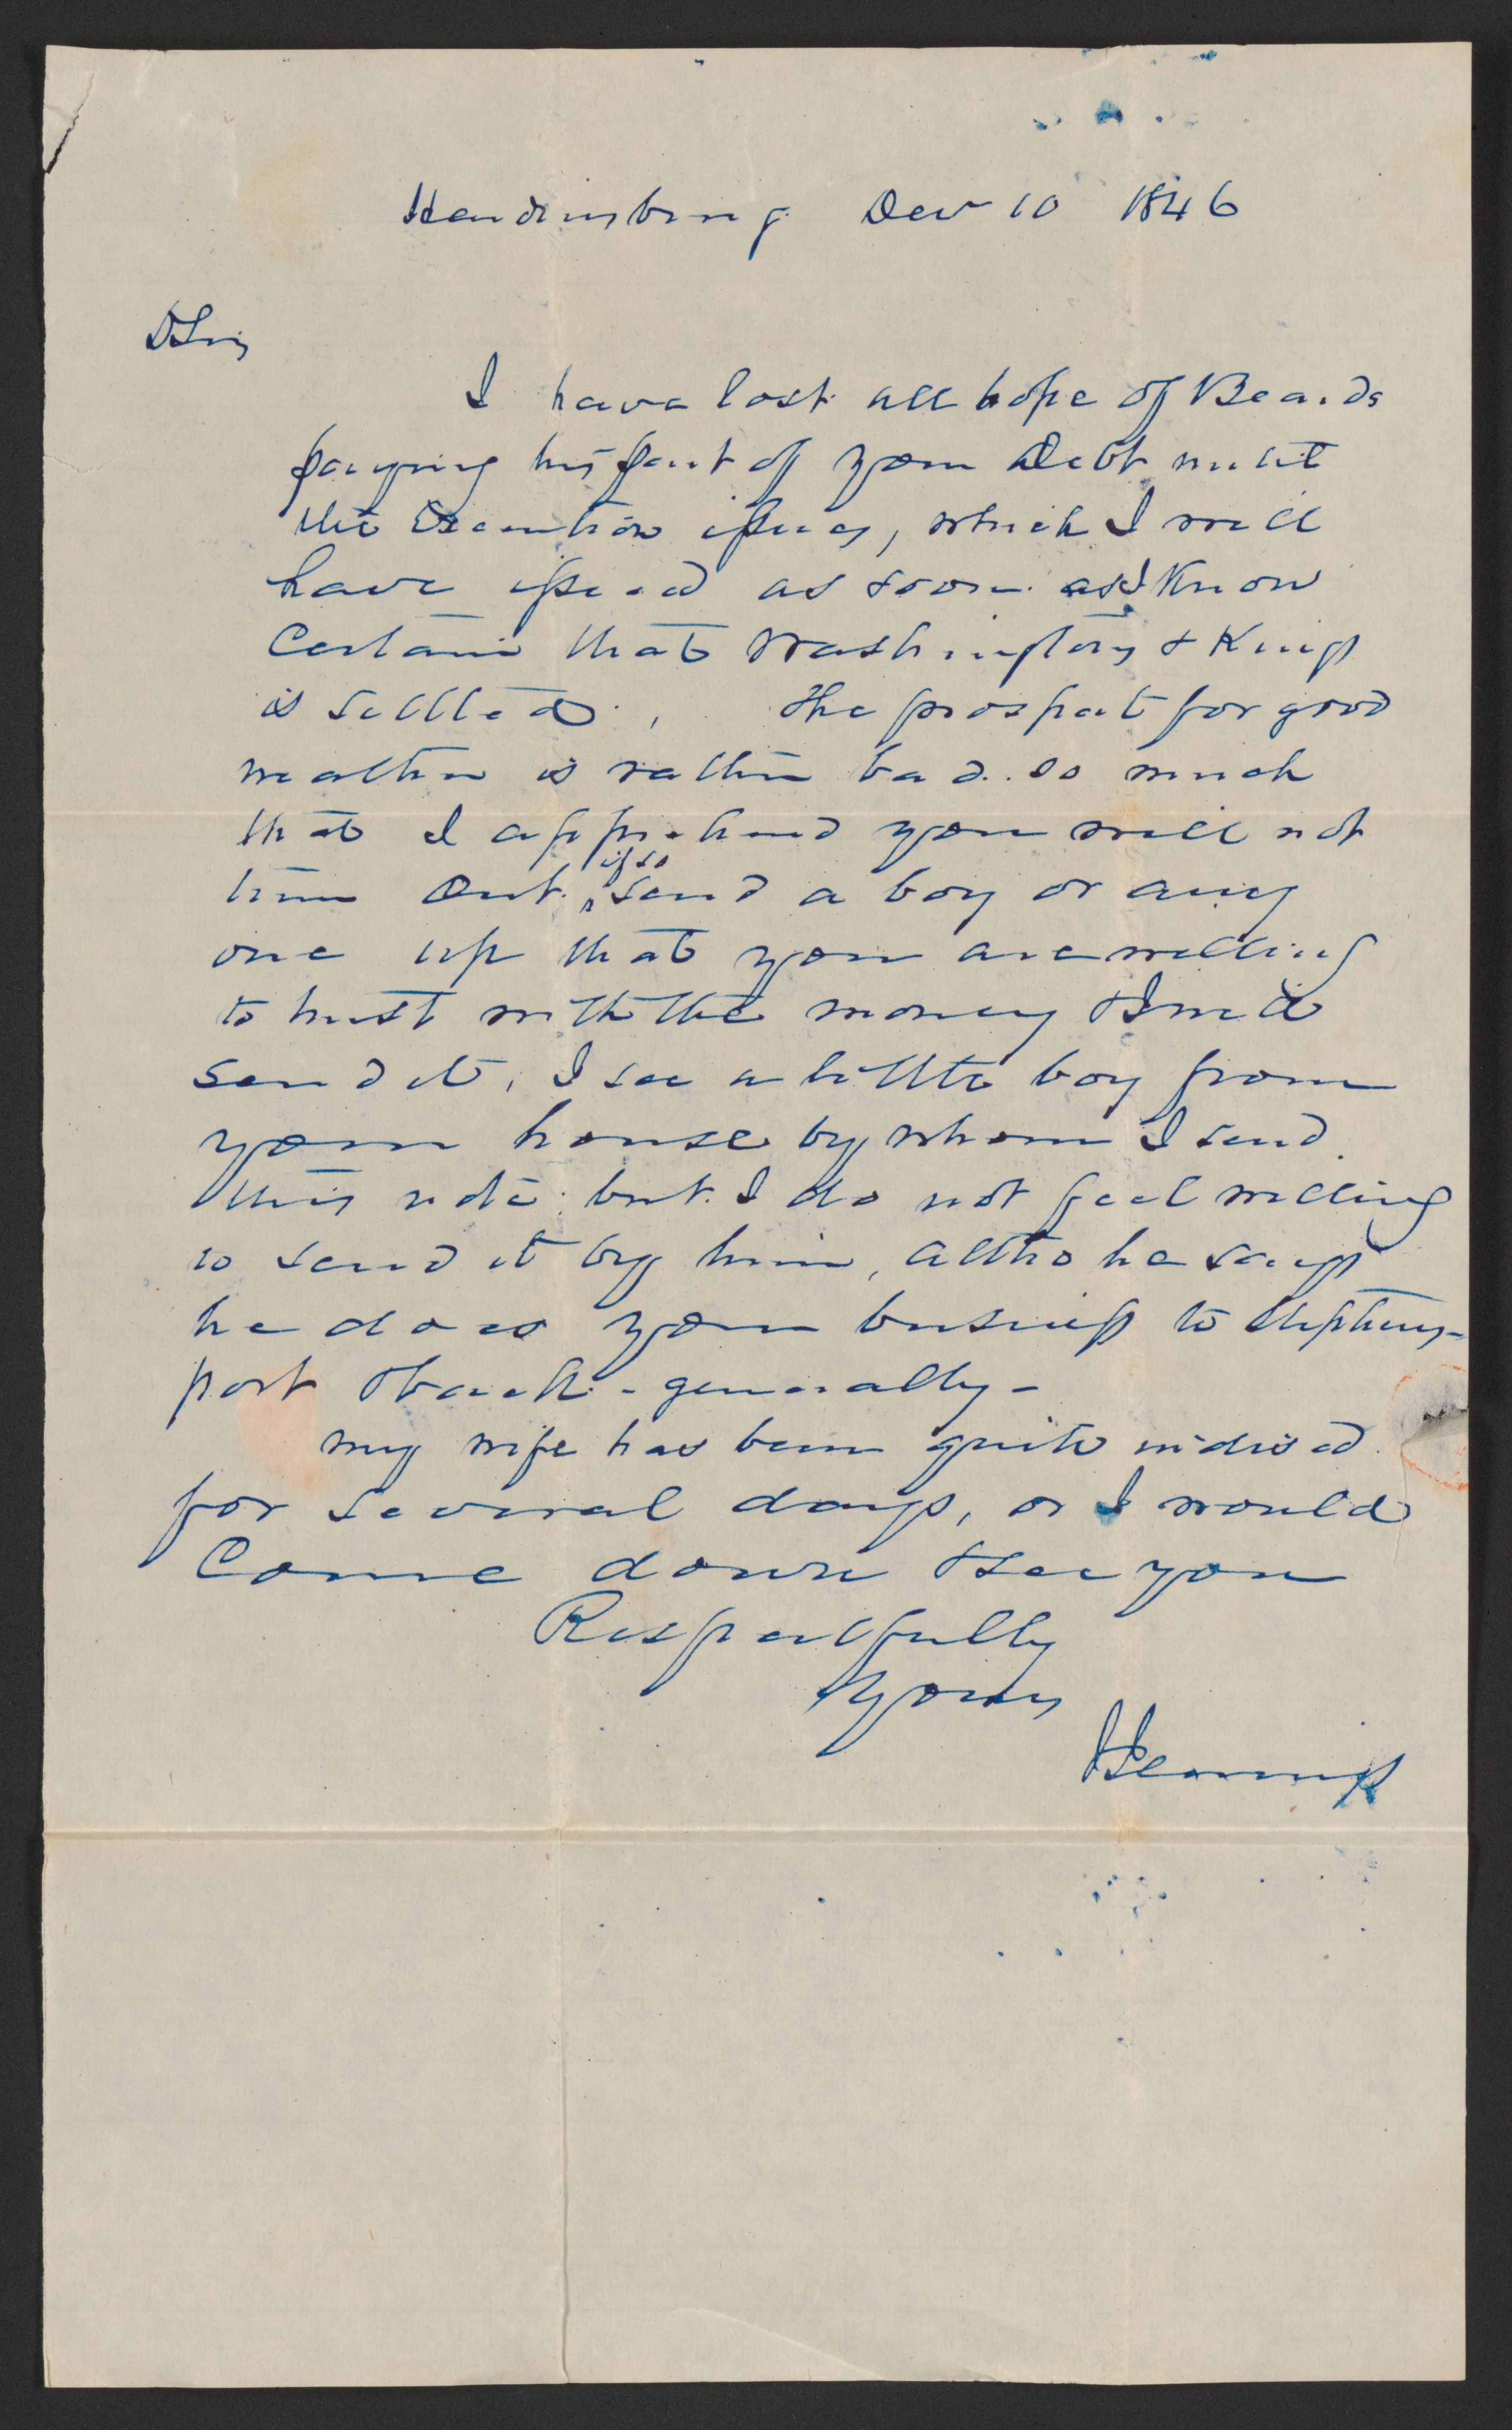 Hardinsburg Dec 10 1846
DSir
I have lost all hope of Beards
paying his part of your Debt until
the Execution issues, which I will
have issued as soon as I Know
Certain that Washington & King
is settled. The prospect for good
weather is rather bad. so much
that I apprehend you will not
turn out. if so send a boy or any
one up that you are willing
to trust with the money & I will
send it. I see a little boy from
your house by whom I send
this note. but I do not feel willing
to send it by him, altho he says
he does your business to Stephens-
port & back - generally -
my wife has been quite indisd
for several days, or I would
Come down & see you
Respectfully
Yours